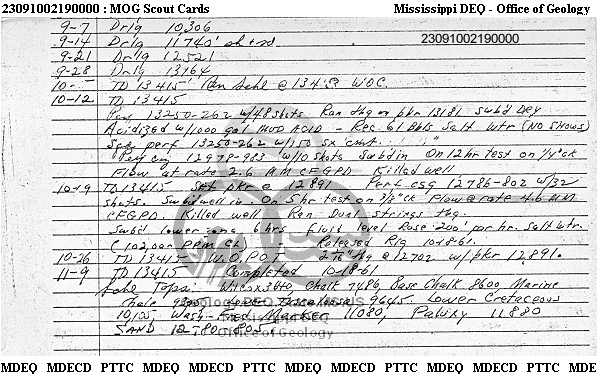 23091002190000 : MOG Scout Cards Mississippi DEQ - Office of Geology
9-7 Drlg 10,306
23091002190000
9-14 Drlg 11740' sh & sd
9-21 Drlg 12521
9-28 Drlg 13164
10- TD 13415' Ran Schl @ 134 WOC.
10-12 TD 13415
Perf 13250-262 w/48 shots Ran tbg on pkr 13181 Swb'd Dry
Acidized w/1000 gal MUD ACID - Rec. 61 Bbls Salt Wtr (NO SHOWS)
Sqz perf 13250-262 w/150 sx cmt.
Perf csg 12978-983 w/10 shots Swbd in On 12 hr test on 1/4" ck
Flow at rate 2.6 MMCFGPD Killed well
10-19 TD 13415 Set pkr @ 12891 Perf csg 12786-802 w/32
shots. Swbd well in On 5 hr test on 3/8" ck Flow @ rate 4.6 MM
CFGPD. Killed well Ran Dual strings tbg.
Swbd lower zone 6 hrs fluid level Rose 200' per hr. Salt wtr.
(102,000 PPM CL) Released Rig 10-18-61.
10-26 TD 13415 W.O.P.O.T 2 tbg @ 12702 w/pkr 12891.
11-9 TD 13415 Completed 10-18-61
Schl Tops: Wilcox 3640, Chalk 7486, Base Chalk 8600, Marine
Shale Lower Tuscaloosa 9645 Lower Cretaceous
Wash-Fred 11080, Paluxy 11880
SAND 12780-805
Geology
Office of Geology
MDEQ MDECD PTTC MDEQ MDECD PTTC MDEQ MDECD PTTC MDEQ MDECD PTTC MDE